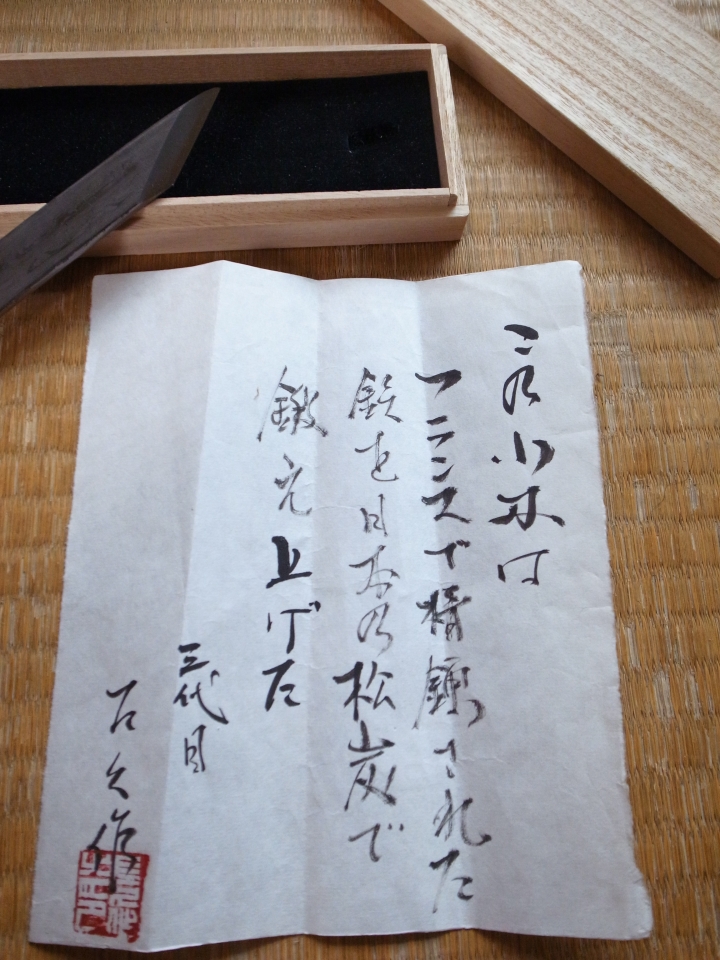 この小は
フランスで精錬された
鉄を日本の松炭で
鍛え上げた
三代目
久作